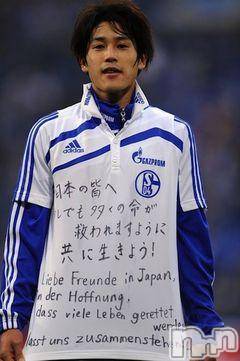 adidas
GAZPROM
日本の皆へ
しでも多くの命が
救われますように
共に生きよう!
Liebe Freunde in Japan,
in der Hoffnung,
dass viele Leben gerettet
werden
lasst uns zusammenstehen